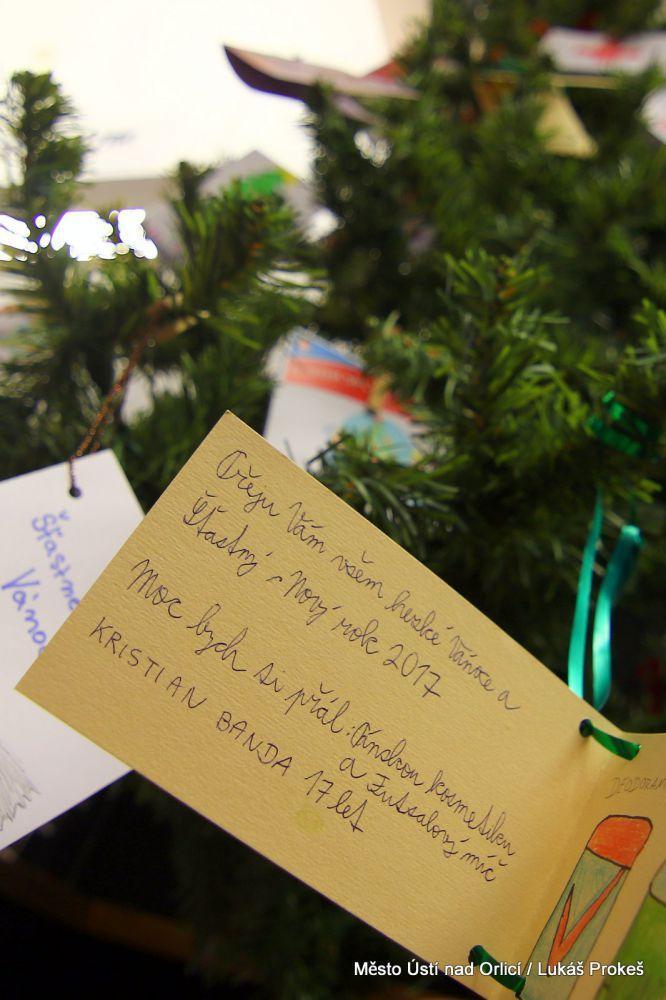 Přeju Vám všem hezké Vánoce a
Šťastný Nový rok 2017
Moc bych si přál: Pánskou kosmetiku
a Futsalový míč
KRISTIAN BANDA 17 let
Šťastné
Vánoc
DEODORAN
Město Ústí nad Orlicí / Lukáš Prokeš